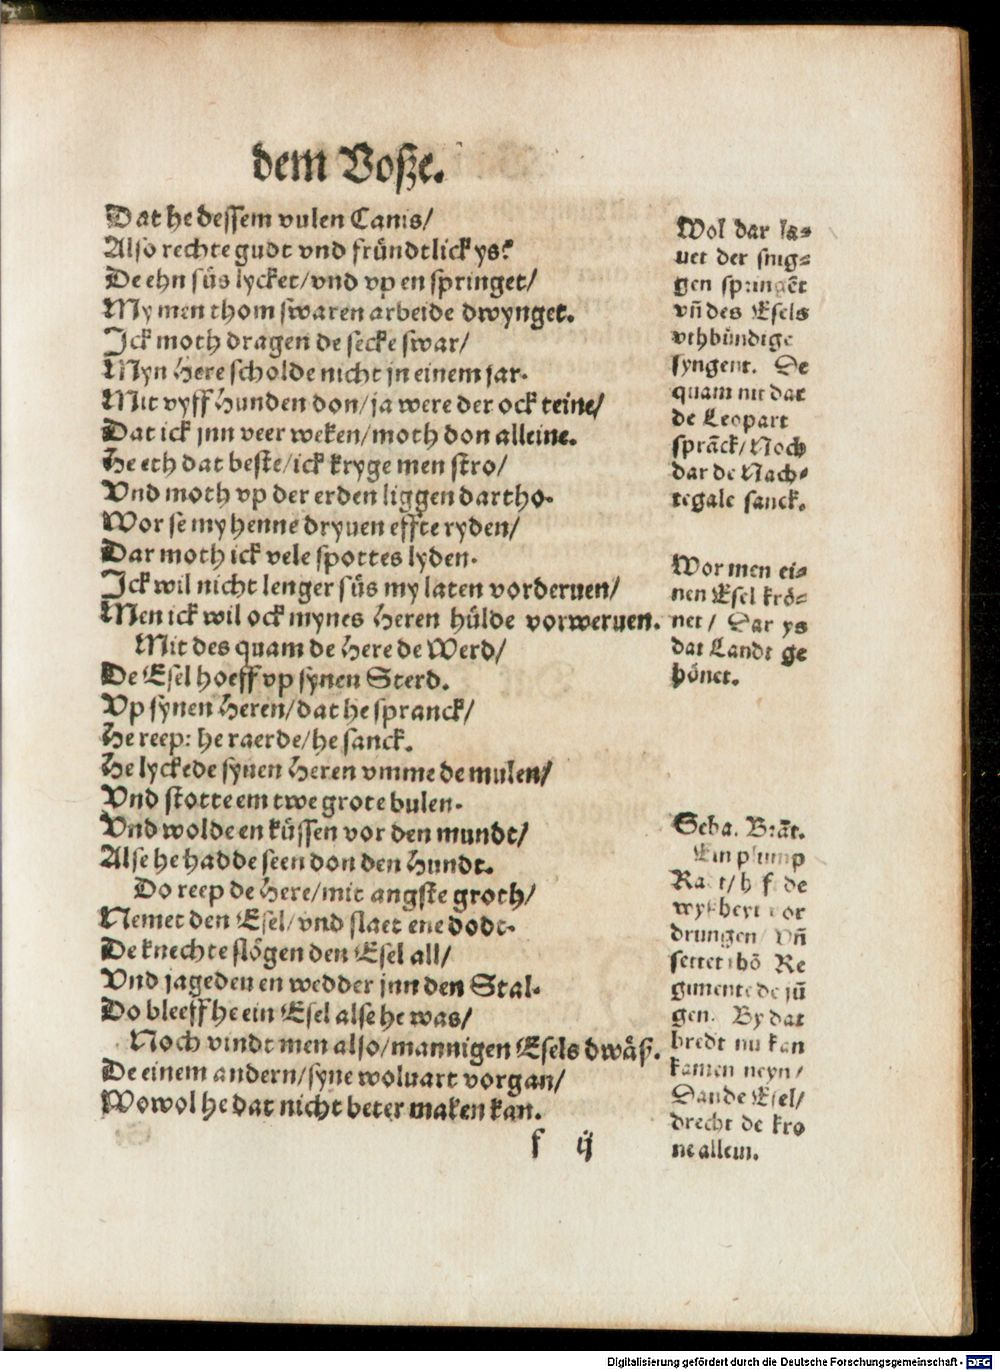 dem Voſze.
Dat he deſſem vulen Canis/
Alſo rechte gudt vnd fründtlick ys?
De ehn ſüs lycket/vnd vp en ſpringet/
My men thom ſwaren arbeide dwynget.
Ick moth dragen de ſecke ſwar/
Myn Here ſcholde nicht jn einem jar.
Mit vyff Hunden don/ja were der ock teine/
Dat ick jnn veer weken/moth don alleine.
He eth dat beſte/ick kryge men ſtro/
Vnd moth vp der erden liggen dartho.
Wor ſe my henne dryuen effte ryden/
Dar moth ick vele ſpottes lyden.
Ick wil nicht lenger ſüs my laten vorderuen/
Men ick wil ock mynes Heren hülde vorweruen.
Mit des quam de Here de Werd/
De Eſel hoeff vp ſynen Sterd.
Vp ſynen Heren/dat he ſpranck/
He reep: he raerde/he ſanck.
He lyckede ſynen Heren vmme de mulen/
Vnd ſtotte em twe grote bulen.
Vnd wolde en küſſen vor den mundt/
Alſe he hadde ſeen don den Hundt.
Do reep de Here/mit angſte groth/
Nemet den Eſel/vnd ſlaet ene dodt.
De knechte ſlögen den Eſel all/
Vnd jageden en wedder jnn den Stal.
Do bleeff he ein Eſel alſe he was/
Noch vindt men alſo/mannigen Eſels dwäſ.
De einem andern/ſyne woluart vorgan/
Wowol he dat nicht beter maken kan.
f ij
Wol dar la⸗
uet der ſnig⸗
gen ſpringēt
vn̄ des Eſels
vthbündige
ſyngent. De
quam nu dat
de Leopart
ſprāck/Noch
dar de Nach⸗
tegale ſanck.
Wor men ei⸗
nen Eſel krö⸗
net/ Dar ys
dat Landt ge
hönet.
Seba. Brāt.
Ein plump
de
drungen vn̄
ſettet thō Re
gimente de jū
gen. By dat
bredt nu kan
kamen neyn/
Dan de Eſel/
drecht de kro
ne allein.
Digitalisierung gefördert durch die Deutsche Forschungsgemeinschaft - DFG